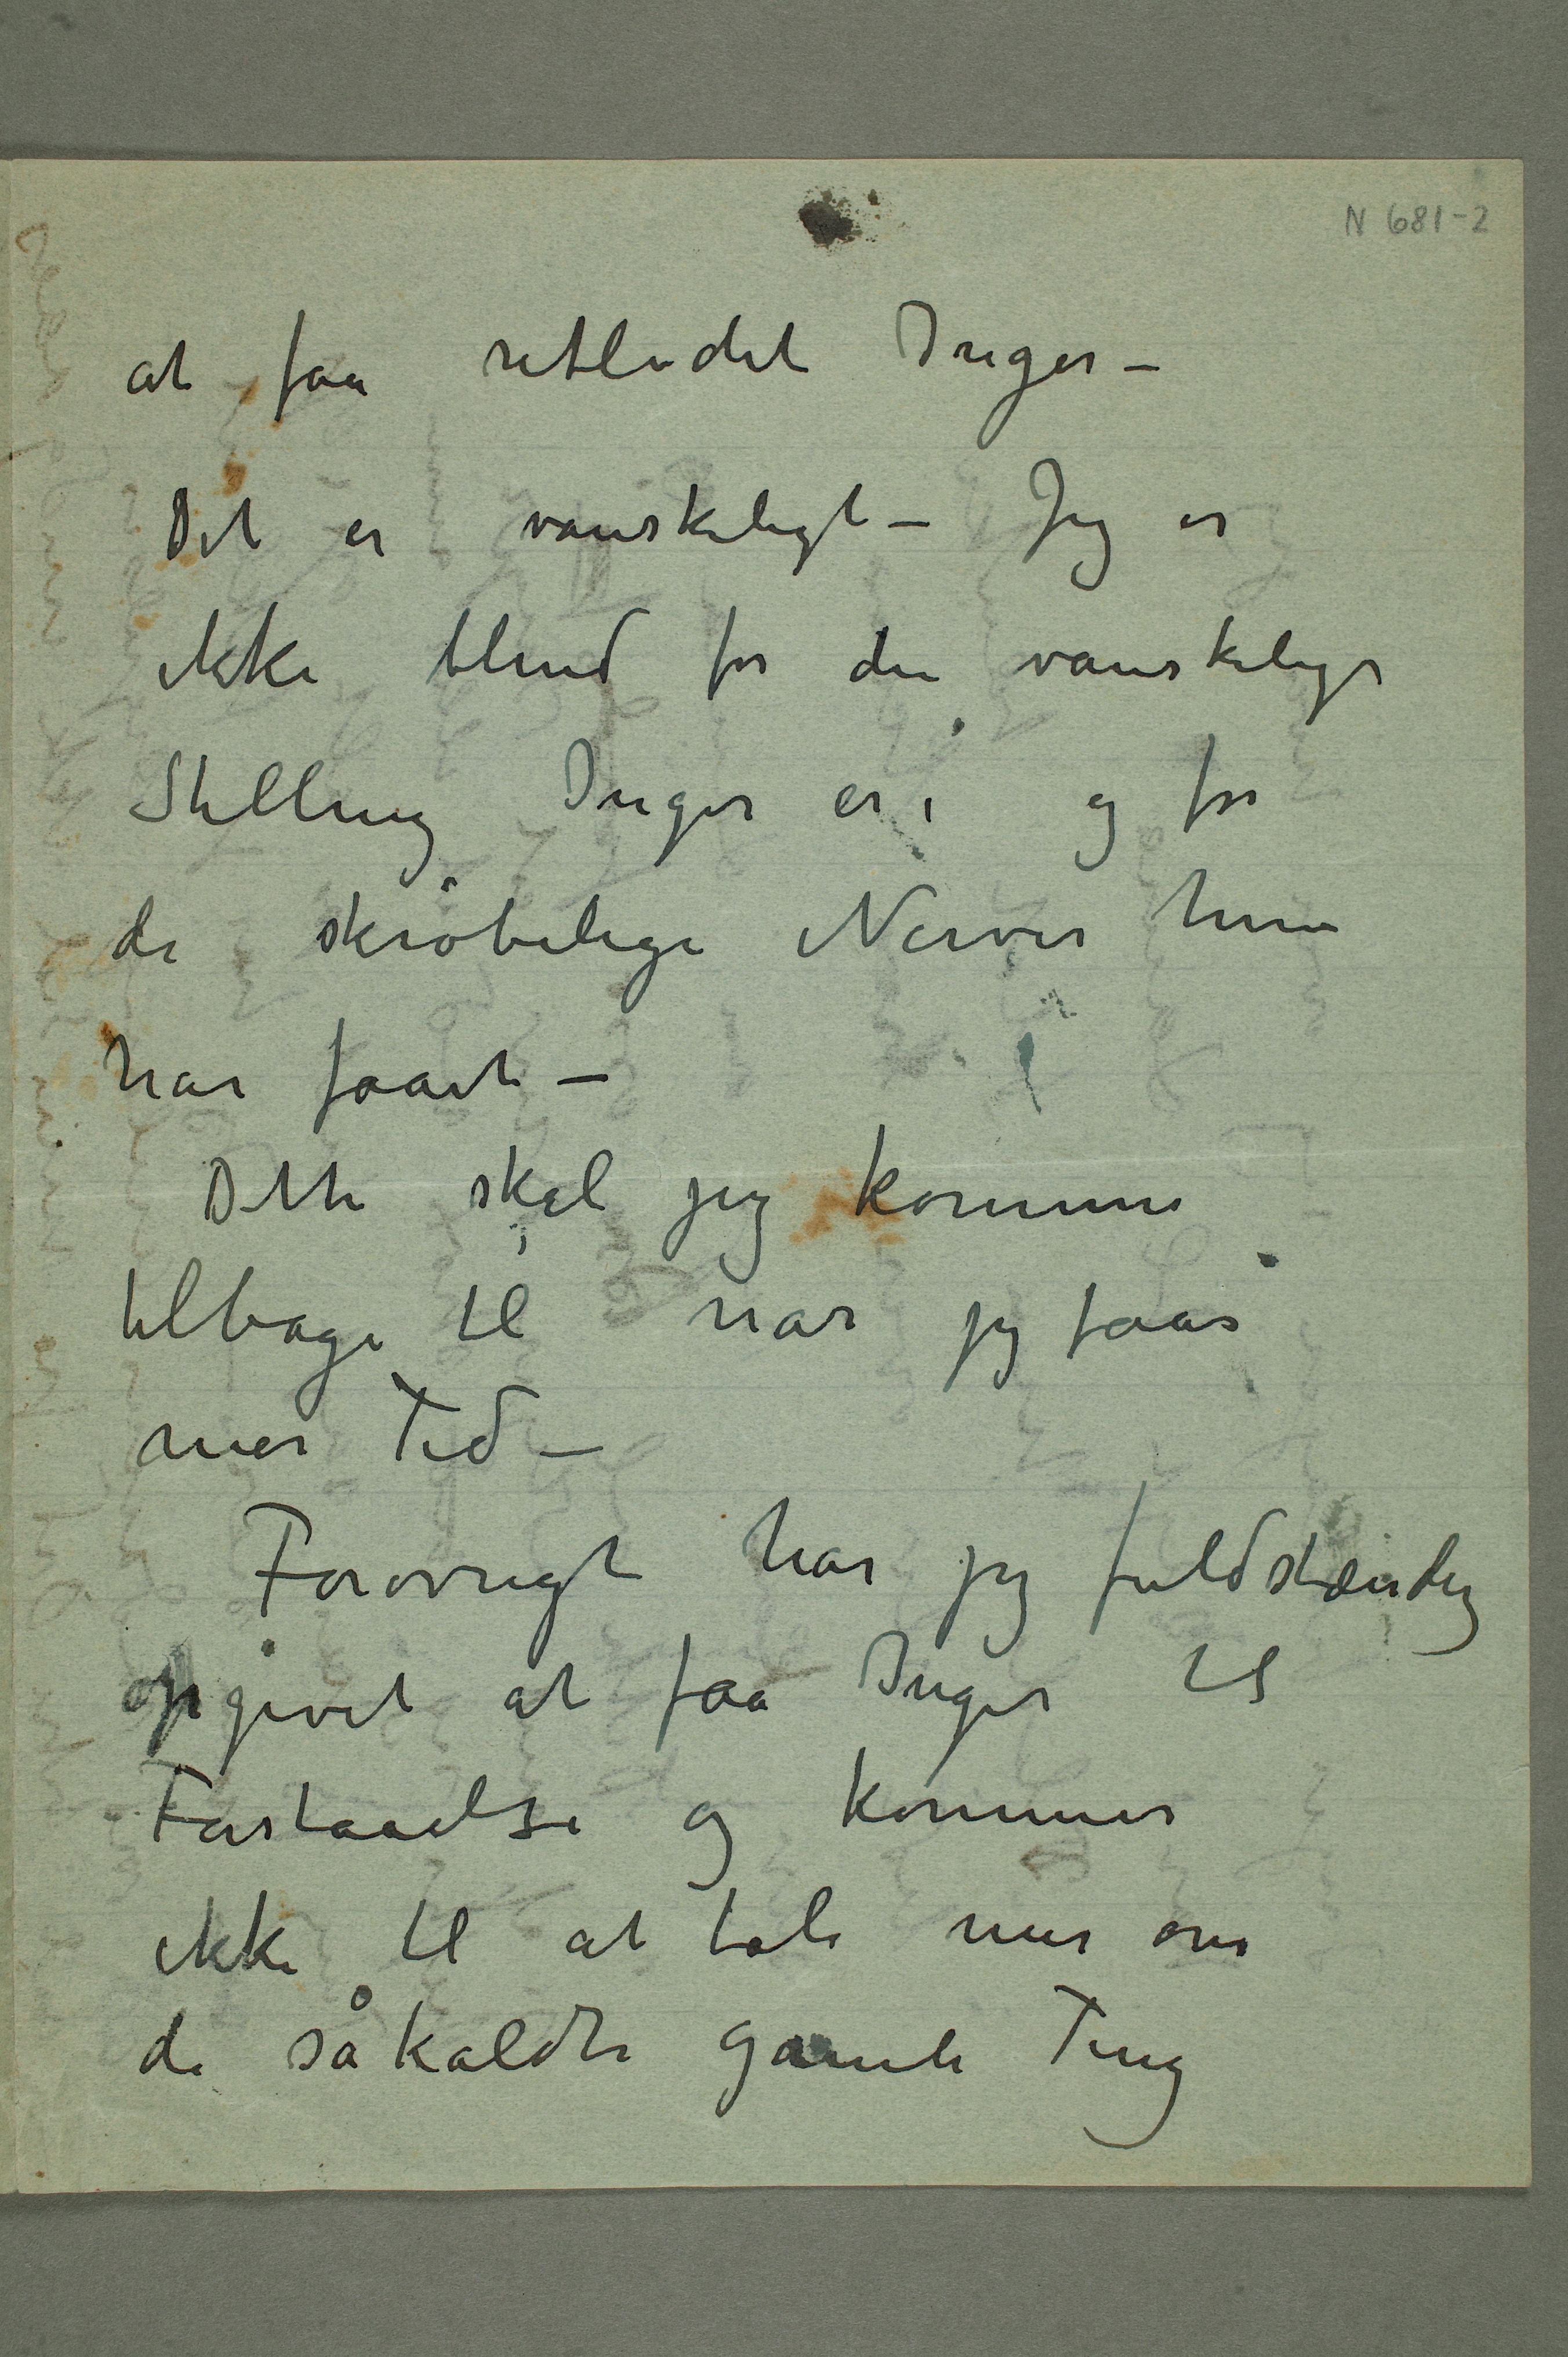 N 681-2
at faa retledet Inger –
Det er vanskeligt – Jeg er
ikke blind for den vanskelige
Stilling Inger er i og for
de skröbelige Nerver hun
har faaet –
Dette skal jeg komme
tilbage til når jeg faar
mer Tid –
Forøvrigt har jeg fuldstændig
opgivet at faa Inger til
Forstaaelse og kommer
ikke til at tale mer om
de såkaldte gamle Ting